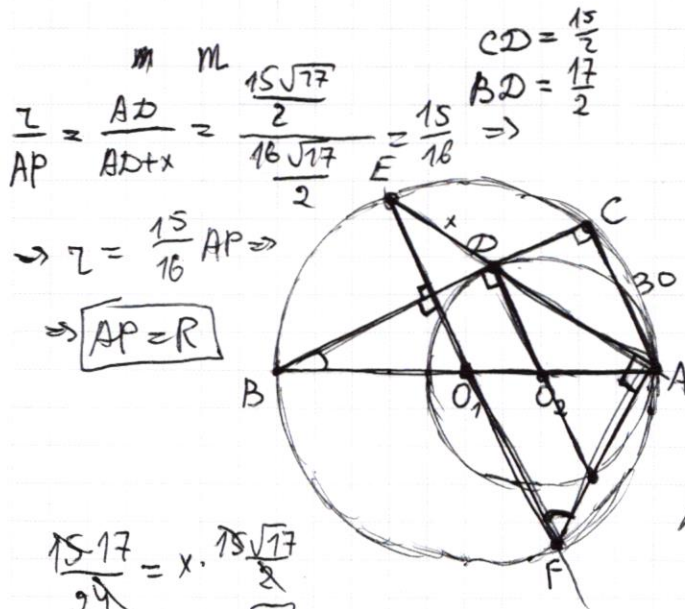 m m
CD = 15/2
BD = 17/2
r/AP = AD/(AD+x) = (15√17/2)/(16√17/2) = 15/16 =>
=> r = 15/16 AP =>
=> AP = R
E
x
D
C
30
B
O₁
O₂
A
F
15·17/24 = x · 15√17/2